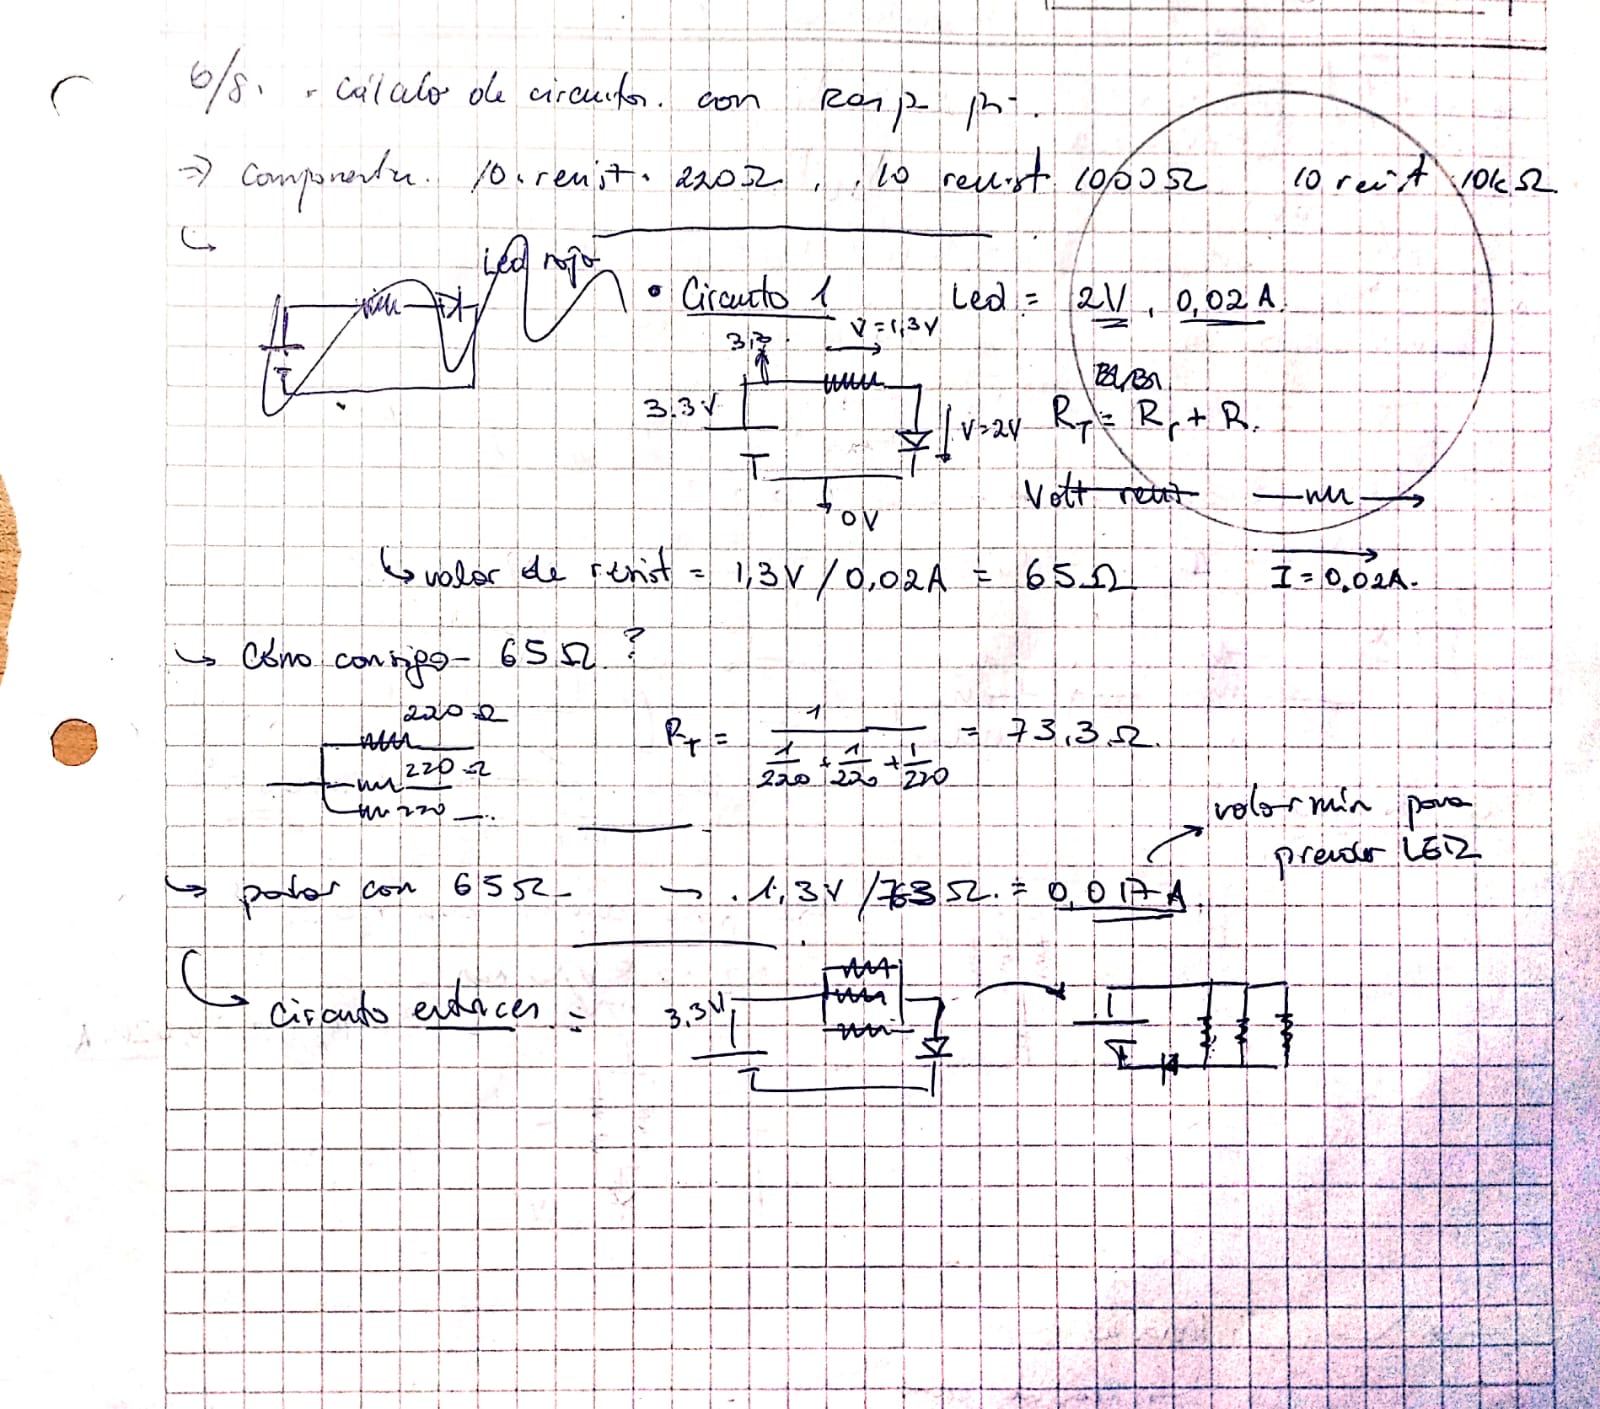 6/8. . Cálculo de circuitos. con Rasp pi.
→ Componentes. 10 resist. 220Ω, . 10 resist 1000Ω 10 resist 10kΩ
Led rojo
• Circuito 1 Led = 2V, 0,02 A.
3,3 V=1,3V
3.3V V=2V R_T = R_1 + R.
Volt resist
0V
↳ valor de resist = 1,3V / 0,02A = 65Ω I = 0,02A.
↳ Cómo consigo 65Ω ?
220Ω
220Ω
220
R_T = 1 / (1/220 + 1/220 + 1/220) = 73,3Ω.
valor min para
prender LED
↳ con 65Ω → . 1,3V / 73Ω. = 0,017A.
↳ Circuito entonces = 3.3V